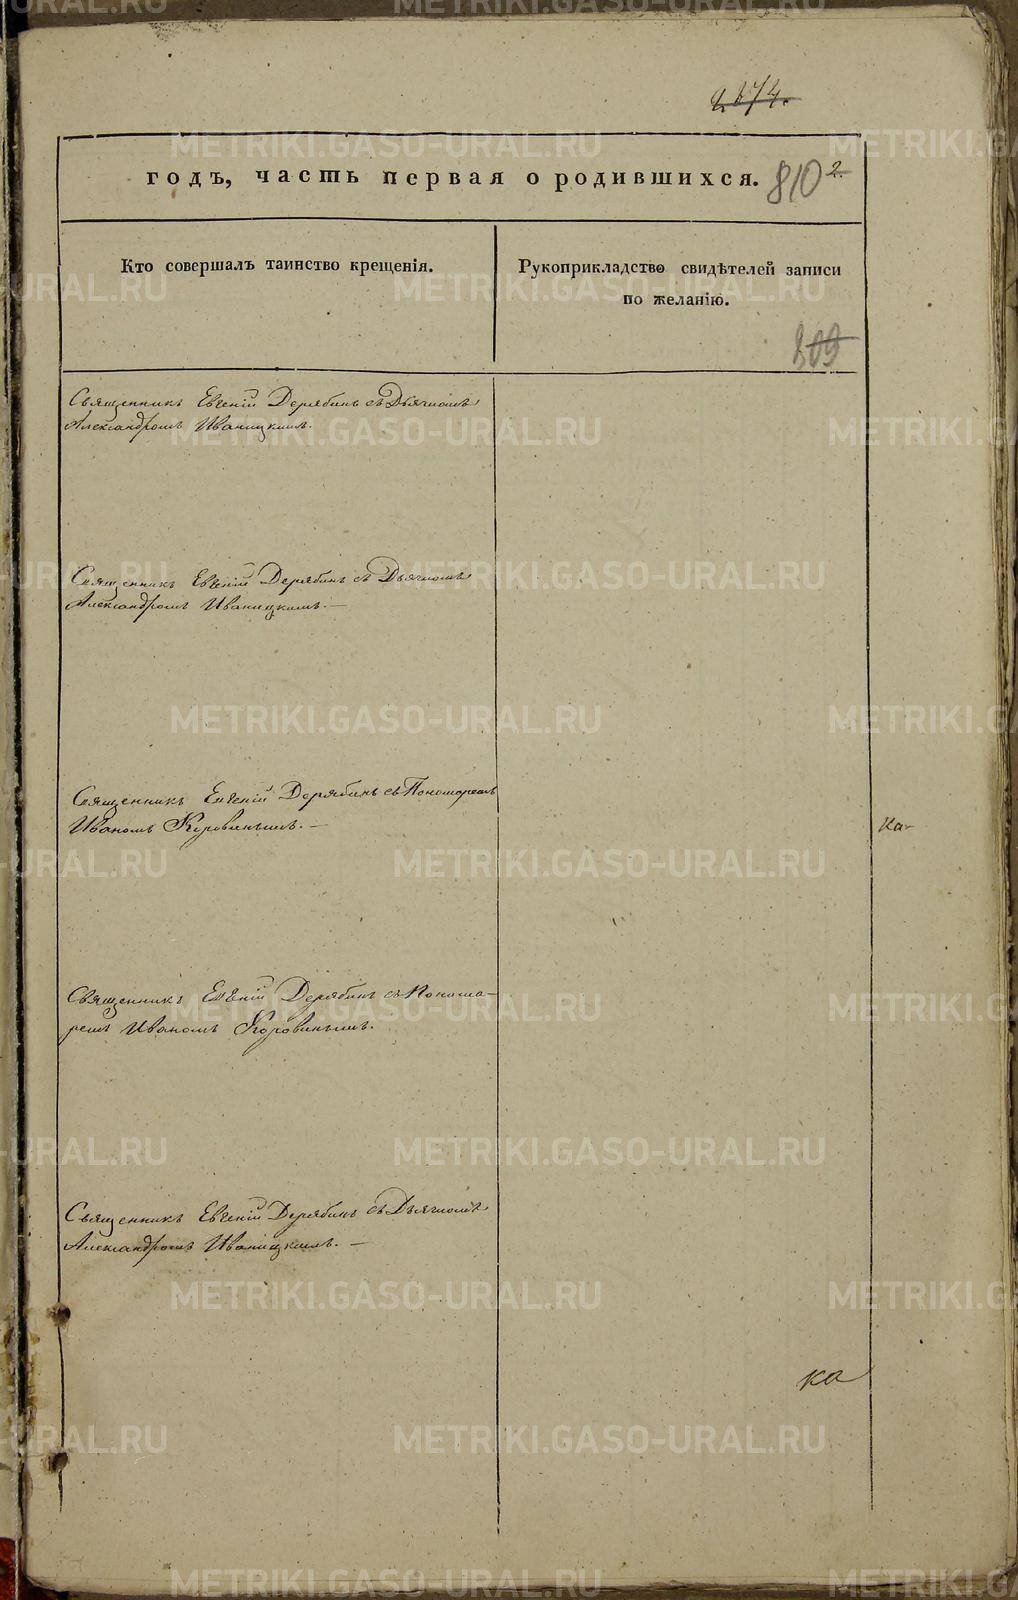 2674.
годъ, часть первая о родившихся. 810 2.
Кто совершалъ таинство крещенія.
Рукоприкладство свидѣтелей записи
по желанію.
809
Священникъ Евгеній Дерябинъ съ Дьячкомъ
Александромъ Иваницкимъ.
Священникъ Евгеній Дерябинъ съ Дьячкомъ
Александромъ Иваницкимъ. —
Священникъ Евгеній Дерябинъ съ Пономаремъ
Иваномъ Коровинымъ. —
Ка-
Священникъ Евгеній Дерябинъ съ Понома-
ремъ Иваномъ Коровинымъ.
Священникъ Евгеній Дерябинъ съ Дьячкомъ
Александромъ Иваницкимъ. —
ка
METRIKI.GASO-URAL.RU